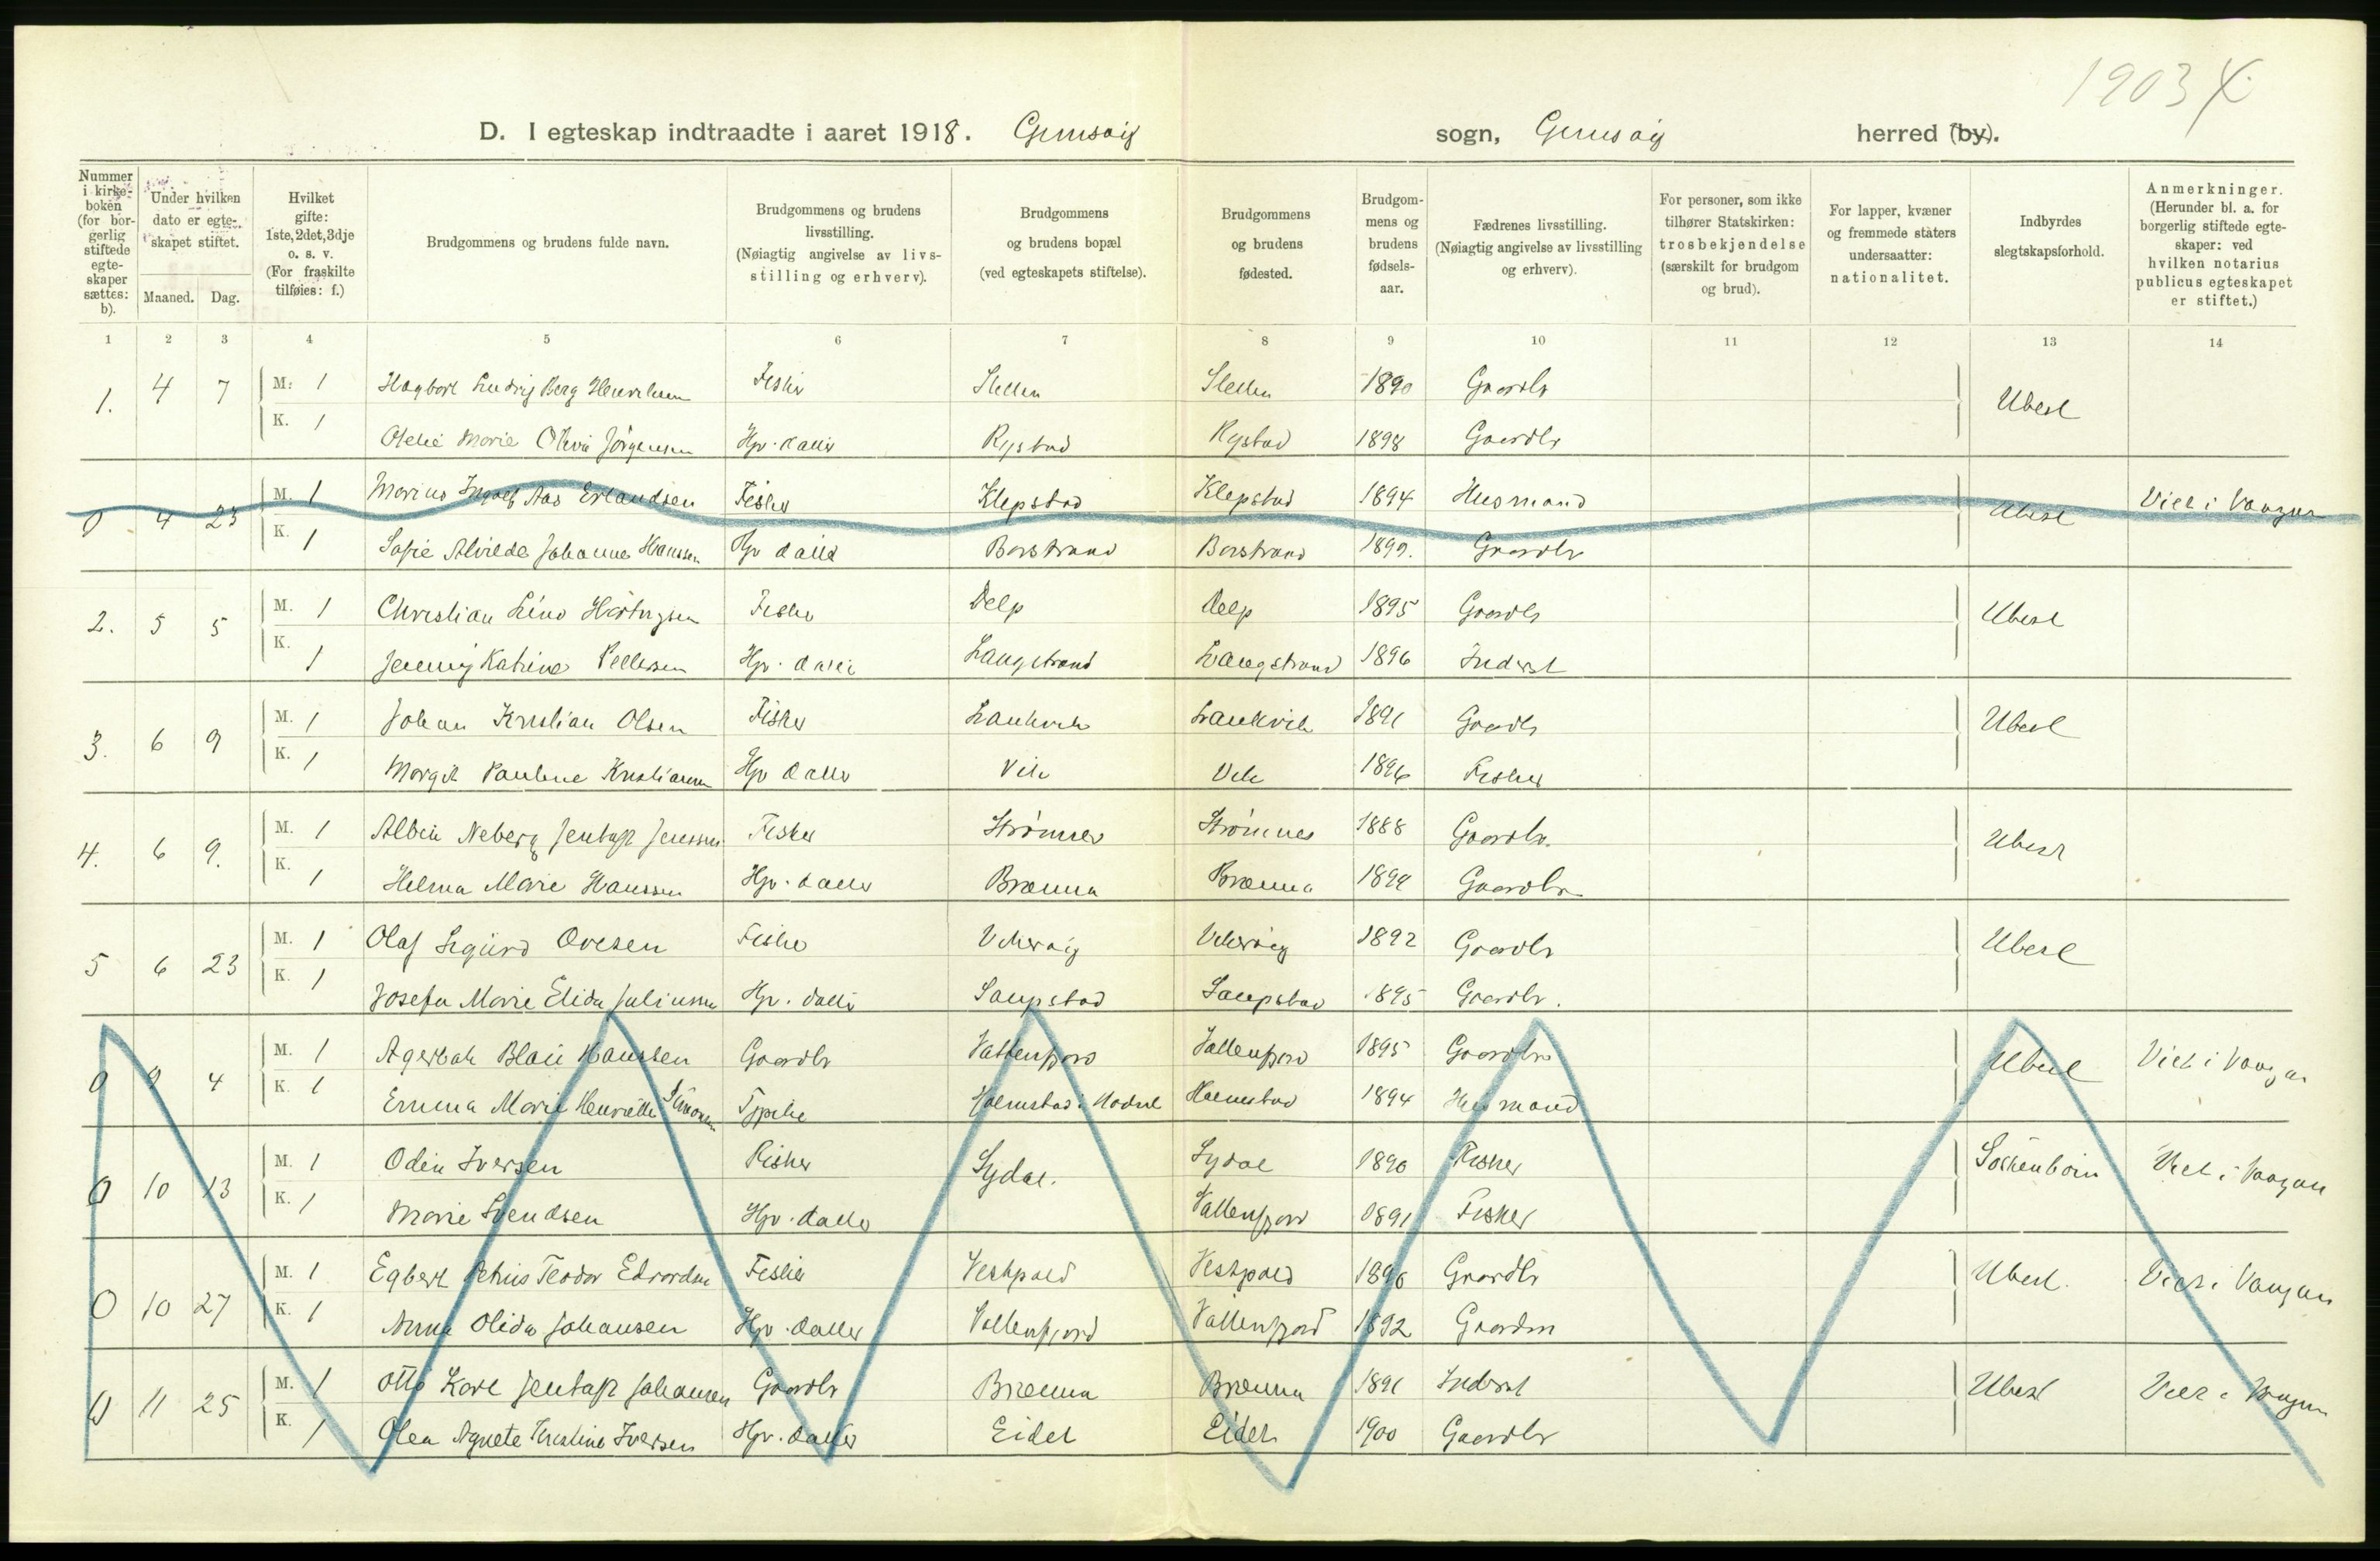 1903 X
D. I egteskap indtraadte i aaret 1918. Gimsøy sogn, Gimsøy herred (by).
Nummer i kirkeboken (for borgerlig stiftede egteskaper sættes: b).
Under hvilken dato er egteskapet stiftet.
Maaned. Dag.
Hvilket gifte: 1ste, 2det, 3dje o. s. v. (For fraskilte tilføies: f.)
Brudgommens og brudens fulde navn.
Brudgommens og brudens livsstilling. (Nøiagtig angivelse av livsstilling og erhverv).
Brudgommens og brudens bopæl (ved egteskapets stiftelse).
Brudgommens og brudens fødested.
Brudgommens og brudens fødselsaar.
Fædrenes livsstilling. (Nøiagtig angivelse av livsstilling og erhverv).
For personer, som ikke tilhører Statskirken: trosbekjendelse (særskilt for brudgom og brud).
For lapper, kvæner og fremmede staters undersaatter: nationalitet.
Indbyrdes slegtskapsforhold.
Anmerkninger. (Herunder bl. a. for borgerlig stiftede egteskaper: ved hvilken notarius publicus egteskapet er stiftet.)
1 2 3 4 5 6 7 8 9 10 11 12 13 14
1. 4 7 M. 1 Hagbart Ludvig Berg Henriksen Fisker Sletten Sletten 1890 Gaardbr Ubesl
K. 1 Marie Olivia Jörgensen Hjv. datter Rystad Rystad 1898 Gaardbr
0 4 23 M. 1 Marius Ingolf Aas Erlandsen Fisker Klepstad Klepstad 1894 Husmand Ubesl Viet i Vaagan
K. 1 Sofie Alvilde Johanne Hanssen Hjv datter Barstrand Barstrand 1899. Gaardbr
2. 5 5 M. 1 Christian Lind Hartvigsen Fisker Delp Delp 1895 Gaardbr Ubesl
K. 1 Jenny Katrine Pettersen Hjv. datter Langstrand Langstrand 1896 Inderst
3. 6 9 M. 1 Johan Kristian Olsen Fisker Laukvik Laukvik 1891 Gaardbr Ubesl
K. 1 Margit Pauline Kristiansen Hjv datter Vik Vik 1896 Fisker
4. 6 9. M. 1 Albin Neberg Jentoft Jenssen Fisker Strømnes Strømnes 1888 Gaardbr. Ubesl
K. 1 Helma Marie Hanssen Hjv. datter Brenna Brenna 1899 Gaardbr
5 6 23 M. 1 Olaf Sigurd Ovesen Fisker Vikerøy Vikerøy 1892 Gaardbr Ubesl
K. 1 Josefa Marie Elida Juliussen Hjv. datter Saupstad Saupstad 1895 Gaardbr.
0 9 4 M. 1 Agerbak Blaii Hanssen Gaardbr Vattenfjord Vattenfjord 1895 Gaardbr Ubesl Viet i Vaagan
K. 1 Emma Marie Henriette Simonsen Holmstad i Hadsel Holmstad 1894 Husmand
0 10 13 M. 1 Odin Iversen Fisker Sydal. Sydal 1890 Fisker Söskenbörn Viet i Vaagan
K. 1 Marie Svendsen Hjv. datter Vattenfjord 1891 Fisker
0 10 27 M. 1 Egbert Petrus Teodor Edvardsen Fisker Vestpold Vestpold 1896 Gaardbr Ubesl. Viet i Vaagan
K. 1 Anna Olida Johansen Hjv. datter Vattenfjord Vattenfjord 1892 Gaardm
0 11 25 M. 1 Otto Karl Jentoft Johansen Gaardbr Brenna Brenna 1891 Inderst Ubesl Viet i Vaagan
K. 1 Olea Agnete Kristine Iversen Hjv. datter Eidet Eidet 1900 Gaardbr